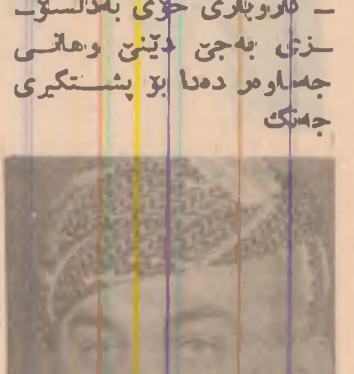 ـ کاروباری خۆی بەدلسۆـ
ـزی بەجێ دێنێ وهانـی
جەماوەر دەدا بۆ پشـتگیری
جەنگ